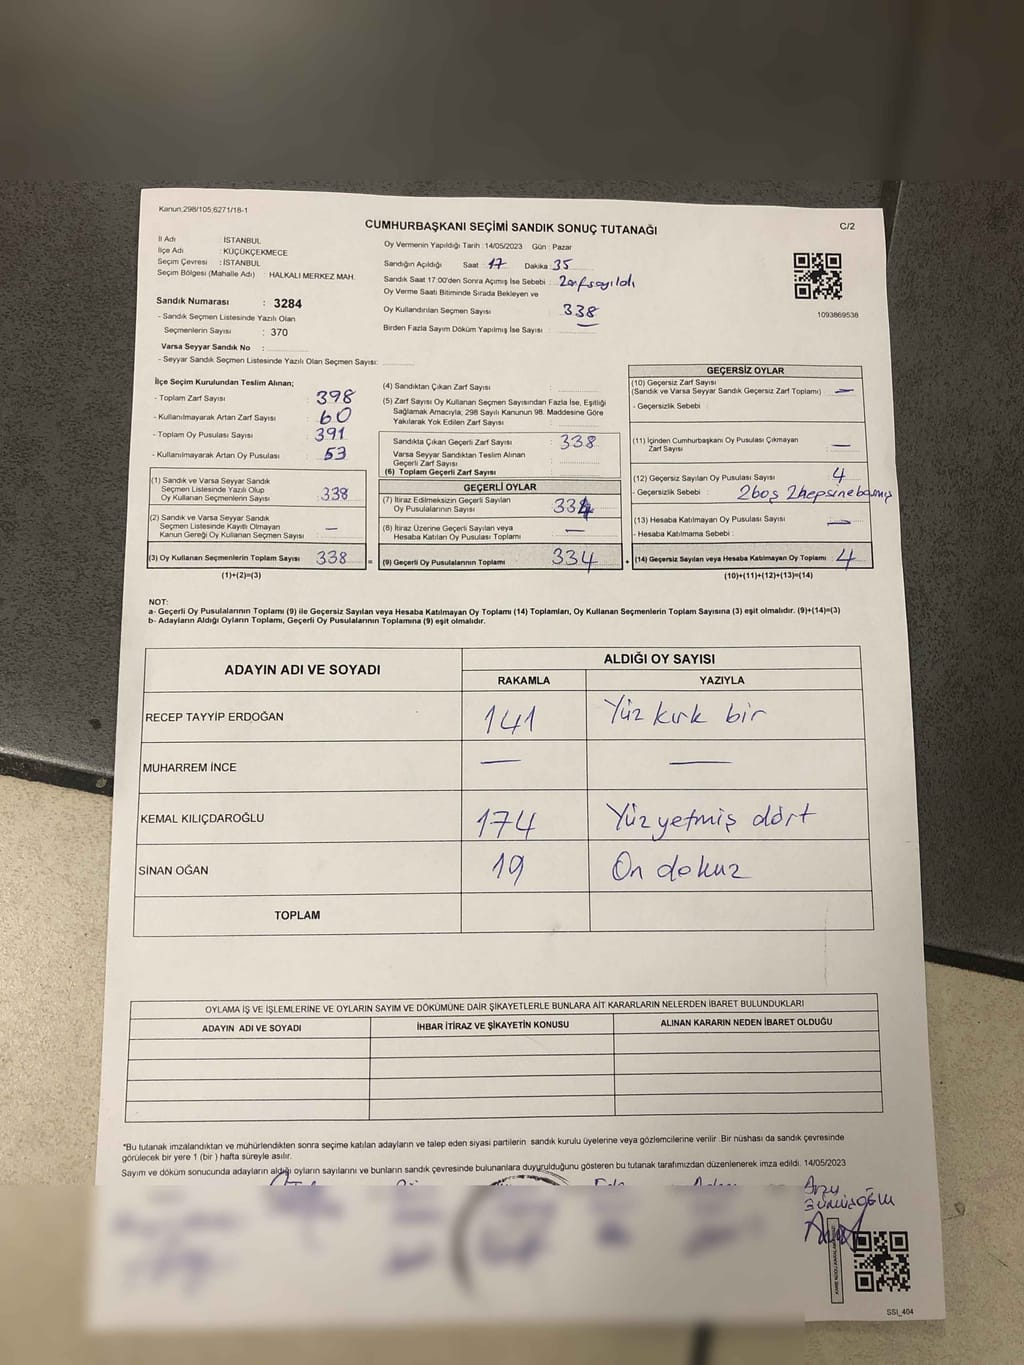 Kanun,298/105,6271/18-1
CUMHURBAŞKANI SEÇİMİ SANDIK SONUÇ TUTANAĞI
C/2
İl Adı : İSTANBUL
İlçe Adı : KÜÇÜKÇEKMECE
Seçim Çevresi : İSTANBUL
Seçim Bölgesi (Mahalle Adı) : HALKALI MERKEZ MAH.
Sandık Numarası : 3284
- Sandık Seçmen Listesinde Yazılı Olan
Seçmenlerin Sayısı : 370
Varsa Seyyar Sandık No :
- Seyyar Sandık Seçmen Listesinde Yazılı Olan Seçmen Sayısı:
Oy Vermenin Yapıldığı Tarih :14/05/2023 Gün : Pazar
Sandığın Açıldığı Saat 17 Dakika 35
Sandık Saat 17:00'den Sonra Açımış İse Sebebi : Zarf sayıldı
Oy Verme Saati Bitiminde Sırada Bekleyen ve
Oy Kullandırılan Seçmen Sayısı : 338
Birden Fazla Sayım Döküm Yapılmış İse Sayısı :
1093869538
İlçe Seçim Kurulundan Teslim Alınan;
- Toplam Zarf Sayısı : 398
- Kullanılmayarak Artan Zarf Sayısı : 60
- Toplam Oy Pusulası Sayısı : 391
- Kullanılmayarak Artan Oy Pusulası : 53
(1) Sandık ve Varsa Seyyar Sandık
Seçmen Listesinde Yazılı Olup
Oy Kullanan Seçmenlerin Sayısı : 338
(2) Sandık ve Varsa Seyyar Sandık
Seçmen Listesinde Kayıtlı Olmayan
Kanun Gereği Oy Kullanan Seçmen Sayısı : —
(3) Oy Kullanan Seçmenlerin Toplam Sayısı : 338 =
(1)+(2)=(3)
(4) Sandıktan Çıkan Zarf Sayısı :
(5) Zarf Sayısı Oy Kullanan Seçmen Sayısından Fazla İse, Eşitliği
Sağlamak Amacıyla; 298 Sayılı Kanunun 98. Maddesine Göre
Yakılarak Yok Edilen Zarf Sayısı :
Sandıkta Çıkan Geçerli Zarf Sayısı : 338
Varsa Seyyar Sandıktan Teslim Alınan
Geçerli Zarf Sayısı :
(6) Toplam Geçerli Zarf Sayısı :
GEÇERLİ OYLAR
(7) İtiraz Edilmeksizin Geçerli Sayılan
Oy Pusulalarının Sayısı : 334
(8) İtiraz Üzerine Geçerli Sayılan veya
Hesaba Katılan Oy Pusulası Toplamı : —
(9) Geçerli Oy Pusulalarının Toplamı : 334 +
GEÇERSİZ OYLAR
(10) Geçersiz Zarf Sayısı
(Sandık ve Varsa Seyyar Sandık Geçersiz Zarf Toplamı) : —
- Geçersizlik Sebebi :
(11) İçinden Cumhurbaşkanı Oy Pusulası Çıkmayan
Zarf Sayısı : —
(12) Geçersiz Sayılan Oy Pusulası Sayısı : 4
- Geçersizlik Sebebi : 2boş 2hepsine basmış
(13) Hesaba Katılmayan Oy Pusulası Sayısı : —
- Hesaba Katılmama Sebebi :
(14) Geçersiz Sayılan veya Hesaba Katılmayan Oy Toplamı : 4
(10)+(11)+(12)+(13)=(14)
NOT:
a- Geçerli Oy Pusulalarının Toplamı (9) ile Geçersiz Sayılan veya Hesaba Katılmayan Oy Toplamı (14) Toplamları, Oy Kullanan Seçmenlerin Toplam Sayısına (3) eşit olmalıdır. (9)+(14)=(3)
b- Adayların Aldığı Oyların Toplamı, Geçerli Oy Pusulalarının Toplamına (9) eşit olmalıdır.
ADAYIN ADI VE SOYADI
ALDIĞI OY SAYISI
RAKAMLA YAZIYLA
RECEP TAYYİP ERDOĞAN 141 Yüz kırk bir
MUHARREM İNCE — —
KEMAL KILIÇDAROĞLU 174 Yüz yetmiş dört
SİNAN OĞAN 19 On dokuz
TOPLAM
OYLAMA İŞ VE İŞLEMLERİNE VE OYLARIN SAYIM VE DÖKÜMÜNE DAİR ŞİKAYETLERLE BUNLARA AİT KARARLARIN NELERDEN İBARET BULUNDUKLARI
ADAYIN ADI VE SOYADI İHBAR İTİRAZ VE ŞİKAYETİN KONUSU ALINAN KARARIN NEDEN İBARET OLDUĞU
*Bu tutanak imzalandıktan ve mühürlendikten sonra seçime katılan adayların ve talep eden siyasi partilerin sandık kurulu üyelerine veya gözlemcilerine verilir .Bir nüshası da sandık çevresinde
görülecek bir yere 1 (bir ) hafta süreyle asılır.
Sayım ve döküm sonucunda adayların aldığı oyların sayılarını ve bunların sandık çevresinde bulunanlara duyurulduğunu gösteren bu tutanak tarafımızdan düzenlenerek imza edildi. 14/05/2023
Arzu
SSI_404